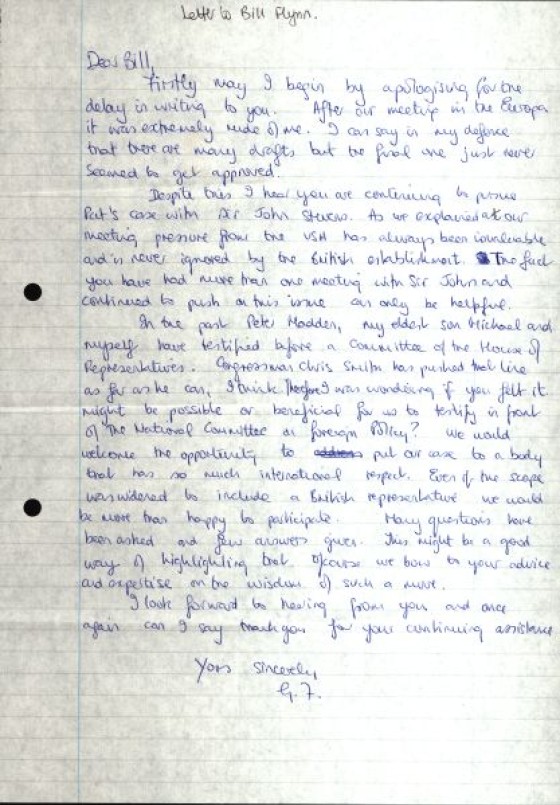 Letter to Bill Flynn.
Dear Bill,
Firstly may I begin by apologising for the
delay in writing to you. After our meeting in the Europa
it was extremely rude of me. I can say in my defence
that there are many drafts but the final one just never
seemed to get approved.
Despite this I hear you are continuing to pursue
Pat's case with Sir John Stevens. As we explained at our
meeting pressure from the USA has always been invaluable
and is never ignored by the British establishment. The fact
you have had more than one meeting with Sir John and
continued to push on this issue can only be helpful.
In the past Peter Madden, my eldest son Michael and
myself have testified before a Committee of the House of
Representatives. Congressman Chris Smith has pushed that line
as far as he can, I think. Therefore I was wondering if you felt it
might be possible or beneficial for us to testify in front
of The National Committee on Foreign Policy? We would
welcome the opportunity to put our case to a body
that has so much international respect. Even if the scope
was widened to include a British representative we would
be more than happy to participate. Many questions have
been asked and few answers given. This might be a good
way of highlighting that. Of course we bow to your advice
and expertise on the wisdom of such a move.
I look forward to hearing from you and once
again can I say thank you for your continuing assistance
Yours sincerely
G.F.